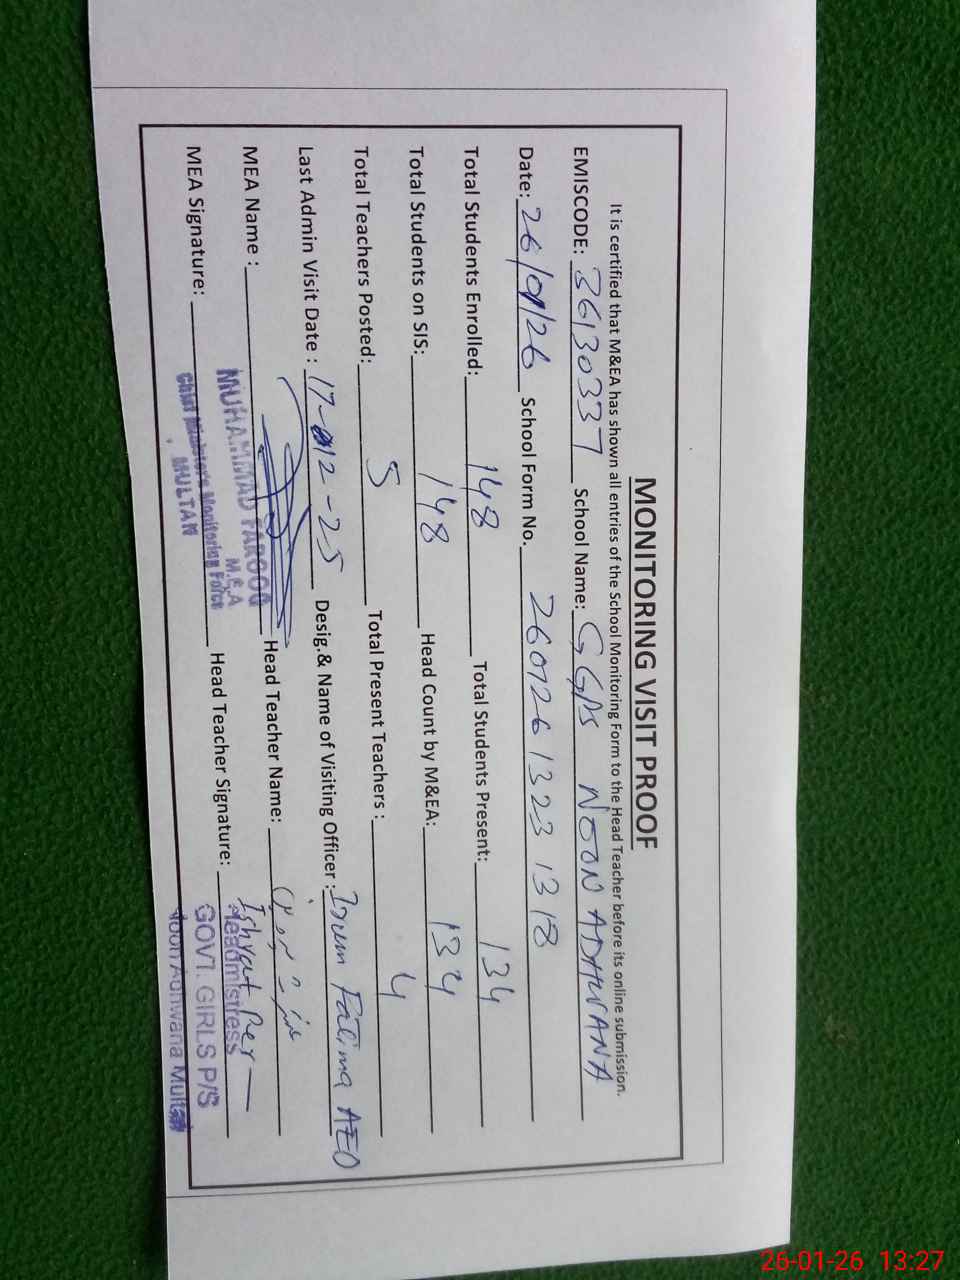 MONITORING VISIT PROOF
It is certified that M&EA has shown all entries of the School Monitoring Form to the Head Teacher before its online submission.
EMISCODE: 36130337 School Name: GGPS NOON ADHWANA
Date: 26/01/26 School Form No. 260126 1323 1318
Total Students Enrolled: 148 Total Students Present: 134
Total Students on SIS: 148 Head Count by M&EA: 134
Total Teachers Posted: 5 Total Present Teachers : 4
Last Admin Visit Date : 17-12-25 Desig.& Name of Visiting Officer : Irum Fatima AEO
MEA Name : Head Teacher Name:
MUHAMMAD FAROOQ
M.E.A
MEA Signature: Head Teacher Signature:
Chief Minister's Monitoring Force
MULTAN
Headmistress
GOVT. GIRLS P/S
Noon Adhwana Multan
26-01-26 13:27